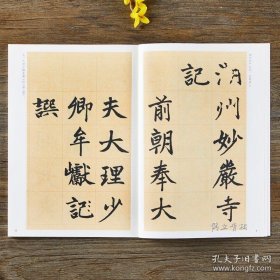 湖州妙嚴寺
記
前朝奉大
夫大理少
卿牟巘記
譔
孔夫子旧书网